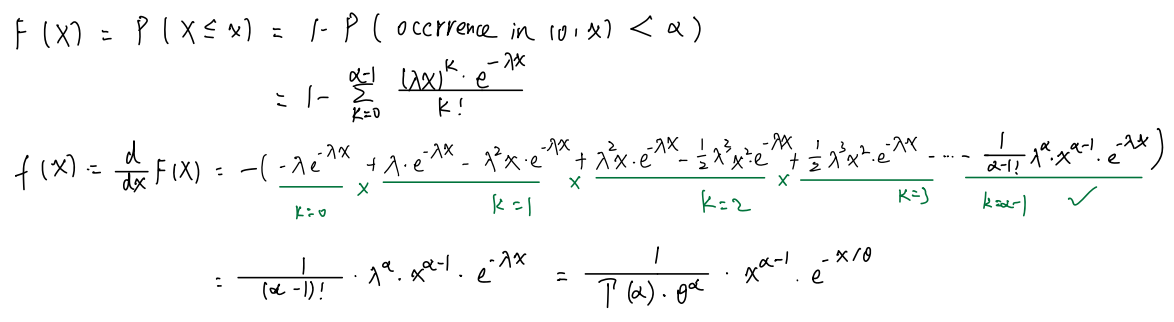 F(X) = P(X ≤ x) = 1- P( occrrence in (0, x) < α)
= 1- Σ_{k=0}^{α-1} \frac{(λx)^k · e^{-λx}}{k!}
f(X) = \frac{d}{dx} F(X) = -( -λe^{-λx} + λ·e^{-λx} - λ²x·e^{-λx} + λ²x·e^{-λx} - \frac{1}{2}λ³x²·e^{-λx} + \frac{1}{2}λ³x²·e^{-λx} - ··· - \frac{1}{α-1!} λ^α·x^{α-1}·e^{-λx} )
k=0 × k=1 × k=2 × k=3 k=α-1 ✓
= \frac{1}{(α-1)!} · λ^α · x^{α-1} · e^{-λx} = \frac{1}{Γ(α)·θ^α} · x^{α-1} · e^{-x/θ}